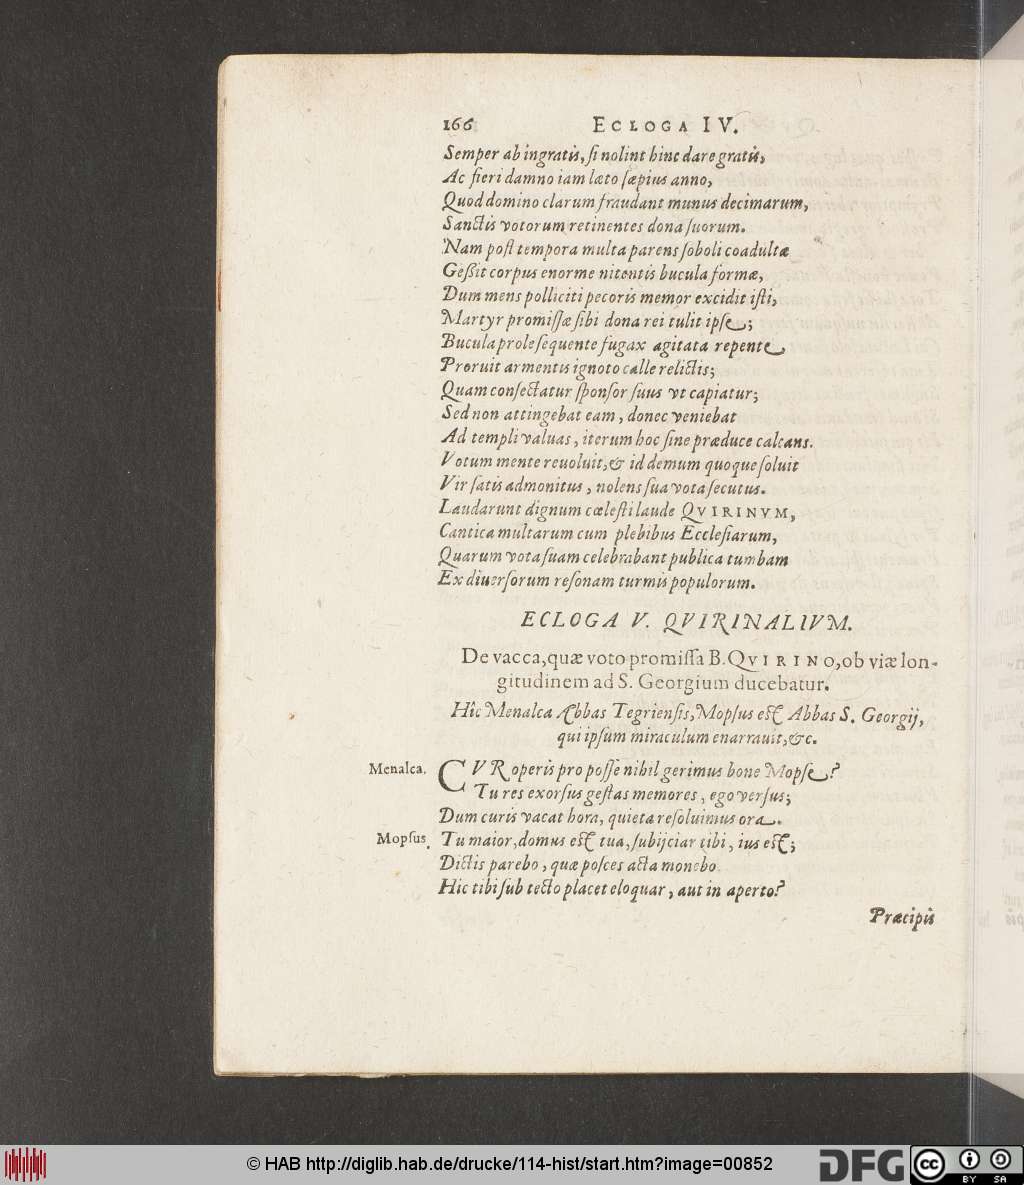 166 ECLOGA IV.
Semper ab ingratis, ſi nolint hinc dare gratis,
Ac fieri damno iam læto ſæpius anno,
Quod domino clarum fraudant munus decimarum,
Sanctis votorum retinentes dona ſuorum.
Nam poſt tempora multa parens ſoboli coadultæ
Geßit corpus enorme nitentis bucula formæ,
Dum mens polliciti pecoris memor excidit iſti,
Martyr promiſſæ ſibi dona rei tulit ipſe;
Bucula prole ſequente fugax agitata repente
Proruit armentis ignoto calle relictis;
Quam conſectatur ſponſor ſuus vt capiatur;
Sed non attingebat eam, donec veniebat
Ad templi valuas, iterum hoc ſine præduce calcans.
Votum mente reuoluit, & id demum quoque ſoluit
Vir ſatis admonitus, nolens ſua vota ſecutus.
Laudarunt dignum cæleſti laude QVIRINVM,
Cantica multarum cum plebibus Eccleſiarum,
Quarum vota ſuam celebrabant publica tumbam
Ex diuerſorum reſonam turmis populorum.
ECLOGA V. QVIRINALIVM.
De vacca, quæ voto promiſſa B. QVIRINO, ob viæ lon-
gitudinem ad S. Georgium ducebatur.
Hîc Menalca Abbas Tegrienſis, Mopſus eſt Abbas S. Georgij,
qui ipſum miraculum enarrauit, &c.
Menalca. CVR operis pro poſſe nihil gerimus bone Mopſe?
Tu res exorſus geſtas memores, ego verſus;
Dum curis vacat hora, quieta reſoluimus ora.
Mopſus. Tu maior, domus eſt tua, ſubijciar tibi, ius eſt;
Dictis parebo, quæ poſces acta monebo.
Hic tibi ſub tecto placet eloquar, aut in aperto?
Præcipis
© HAB http://diglib.hab.de/drucke/114-hist/start.htm?image=00852
DFG
cc
BY SA